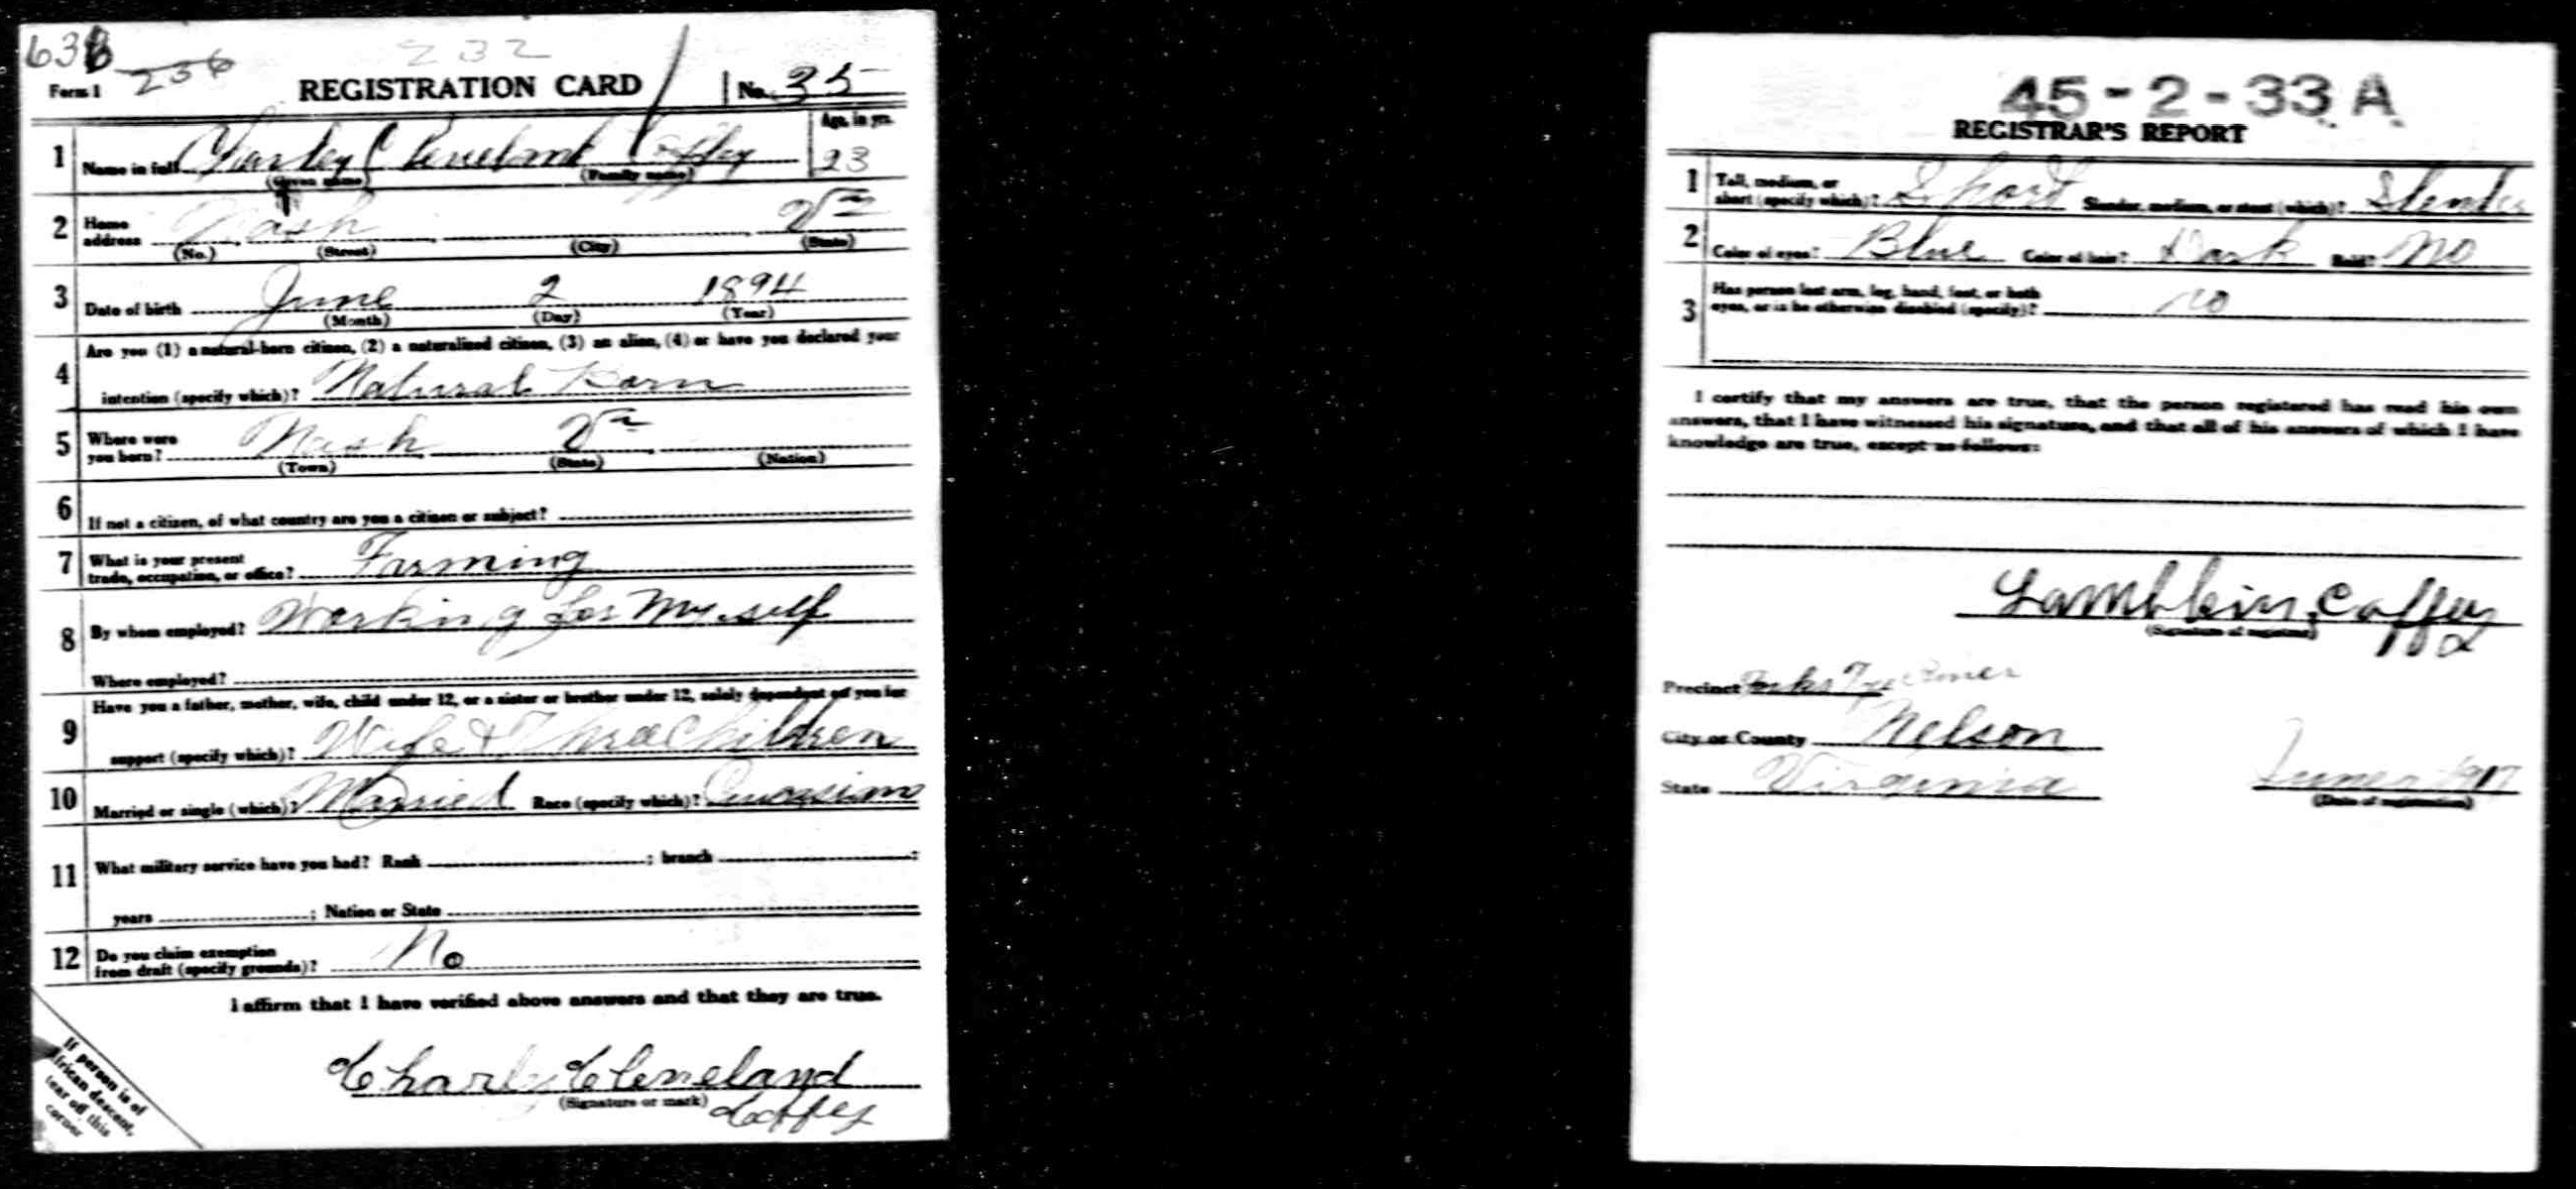 638 236 232
Form 1 REGISTRATION CARD No. 35
1 Name in full Charley Cleveland Coffey Age, in yrs. 23
(Given name) (Family name)
2 Home address Nash Va
(No.) (Street) (City) (State)
3 Date of birth June 2 1894
(Month) (Day) (Year)
4 Are you (1) a natural-born citizen, (2) a naturalized citizen, (3) an alien, (4) or have you declared your
intention (specify which)? Natural Born
5 Where were you born? Nash Va
(Town) (State) (Nation)
6 If not a citizen, of what country are you a citizen or subject?
7 What is your present trade, occupation, or office? Farming
8 By whom employed? Working for My self
Where employed?
9 Have you a father, mother, wife, child under 12, or a sister or brother under 12, solely dependent on you for
support (specify which)? Wife & Three Children
10 Married or single (which)? Married Race (specify which)?
11 What military service have you had? Rank ; branch ;
years ; Nation or State
12 Do you claim exemption from draft (specify grounds)? No
I affirm that I have verified above answers and that they are true.
Charley Cleveland
(Signature or mark) Coffey
If person is of
African descent,
tear off this
corner
45-2-33 A
REGISTRAR'S REPORT
1 Tall, medium, or short (specify which)? Short Slender, medium, or stout (which)? Slender
2 Color of eyes? Blue Color of hair? Dark Bald? No
3 Has person lost arm, leg, hand, foot, or both
eyes, or is he otherwise disabled (specify)? no
I certify that my answers are true, that the person registered has read his own
answers, that I have witnessed his signature, and that all of his answers of which I have
knowledge are true, except as follows:
Lambkin Coffey
(Signature of registrar)
Precinct
City or County Nelson
State Virginia June 1917
(Date of registration)